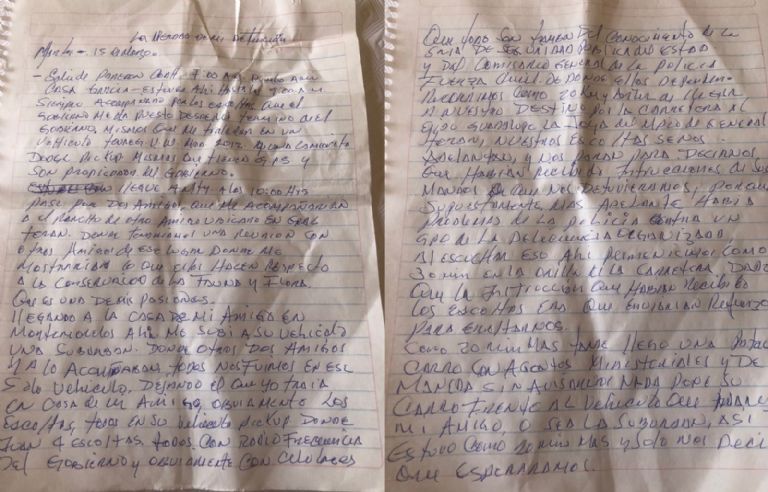 LA VERDAD DE MI DETENCIÓN
MARTES - 15 DE MARZO.
- SALI DE PARRAS 7:00 A.M. RUMBO A MI
CASA GARCIA - ESTUVE AHI HASTA LAS 9:00 A.M.
SIEMPRE ACOMPAÑADO POR LOS ESCOLTAS QUE EL
GOBIERNO ME HA PUESTO DESDE QUE TERMINO EL
GOBIERNO, MISMOS QUE ME TRAIAN EN UN
VEHICULO 2012 Y UNA CAMIONETA
DODGE PICKUP MISMOS QUE TIENEN G.P.S Y
SON PROPIEDAD DEL GOBIERNO.
LLEGUE A MTY A LAS 10:00 HRS
PASE POR DOS AMIGOS, QUE ME ACOMPAÑARIAN
A EL RANCHO DE OTRO AMIGO UBICADO EN GRAL
TERAN. DONDE TENDRIAMOS UNA REUNION CON
OTROS AMIGOS DE ESE LUGAR DONDE ME
MOSTRARIAN LO QUE ELLOS HACEN RESPECTO
A LA CONSERVACION DE LA FAUNA Y FLORA.
QUE ES UNA DE MIS PASIONES.
LLEGANDO A LA CASA DE MI AMIGO EN
MONTEMORELOS AHI ME SUBI A SU VEHICULO
UNA SUBURBAN. DONDE OTROS DOS AMIGOS
YA LO ACOMPAÑABAN, TODOS NOS FUIMOS EN ESE
SOLO VEHICULO, DEJANDO EL QUE YO TRAIA
EN CASA DE MI AMIGO, OBVIAMENTE LOS
ESCOLTAS, TODOS EN SU VEHICULO PICKUP DONDE
IVAN 4 ESCOLTAS TODOS CON RADIO FRECUENCIA
DEL GOBIERNO Y OBVIAMENTE CON CELULARES
QUE TODO SON TAMBIEN DEL CONOCIMIENTO DE LA
SRIA DE SEGURIDAD PUBLICA DEL ESTADO
Y DEL COMISARIO GENERAL DE LA POLICIA
FUERZA CIVIL DE DONDE ELLOS DEPENDEN.
HABRIAMOS COMO 20 KM Y ANTES DE LLEGAR
A NUESTRO DESTINO POR LA CARRETERA AL
EJIDO GUADALUPE LA JOYA DEL MPIO DE GENERAL
TERAN, NUESTROS ESCOLTAS SE NOS
ADELANTAN, Y NOS PARAN PARA DECIRNOS
QUE HABIAN RECIBIDO INTRUCCIONES DE SUS
MANDOS DE QUE NOS DETUVIERAMOS, PORQUE
SUPUESTAMENTE MAS ADELANTE HABIA
PROBLEMAS DE LA POLICIA CONTRA UN
GPO DE LA DELINCUENCIA ORGANIZADA
AL ESCUCHAR ESO AHI PERMANECIMOS COMO
30 MIN EN LA ORILLA DE LA CARRETERA, DADO
QUE LA INSTRUCCION QUE HABIAN RECIBIDO
LOS ESCOLTAS ERA QUE ENVIARIAN REFUERZOS
PARA
COMO 20 MIN MAS TARDE LLEGO UNA
CARRO CON AGENTES MINISTERIALES Y DE
MANERA SIN AVISARNOS NADA PONE SU
CARRO FRENTE AL VEHICULO QUE
MI AMIGO, O SEA LA SUBURBAN, ASI
ESTUVO COMO 20 MIN MAS Y SOLO NOS DECIAN
QUE ESPERARAMOS.